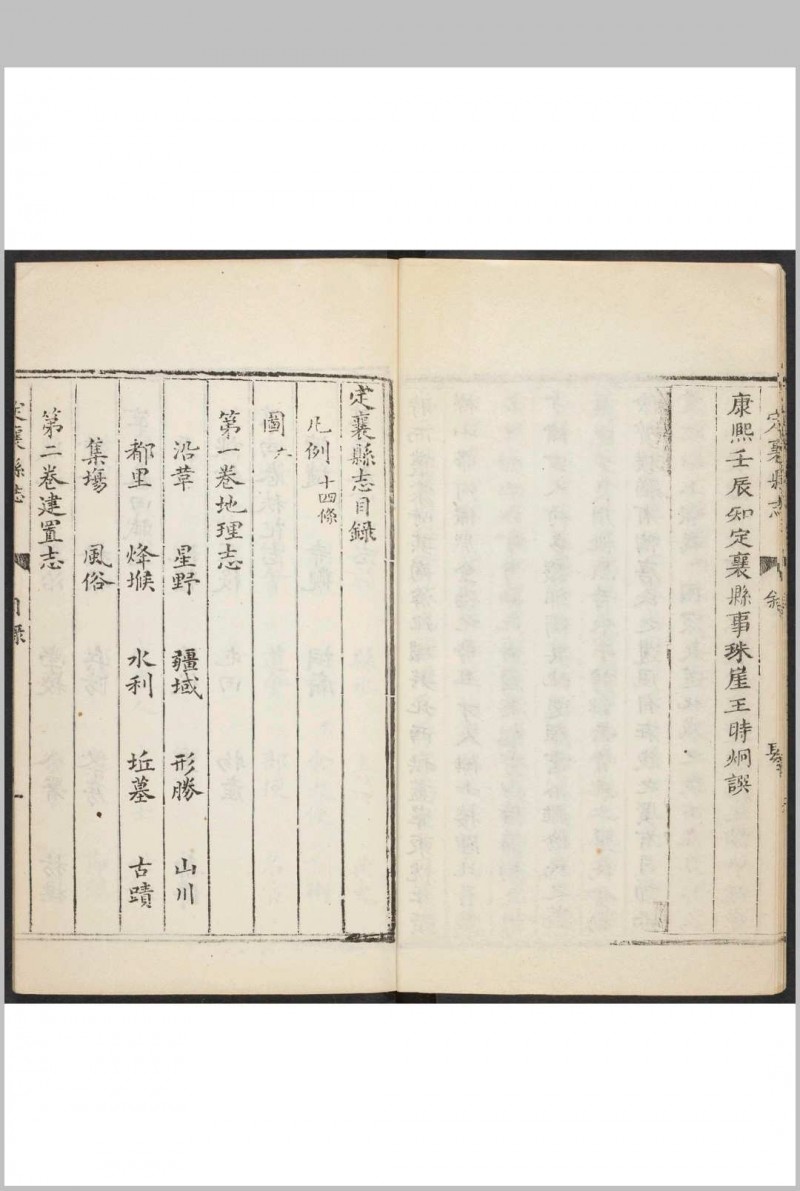 定襄縣志
康熙壬辰知定襄縣事珠崖王時炯譔
定襄縣志目錄
凡例 十四條
圖 六
第一卷地理志
沿革 星野 疆域 形勝 山川
都里 烽堠 水利 坵墓 古蹟
集場 風俗
第二卷建置志
定襄縣志 目錄 一